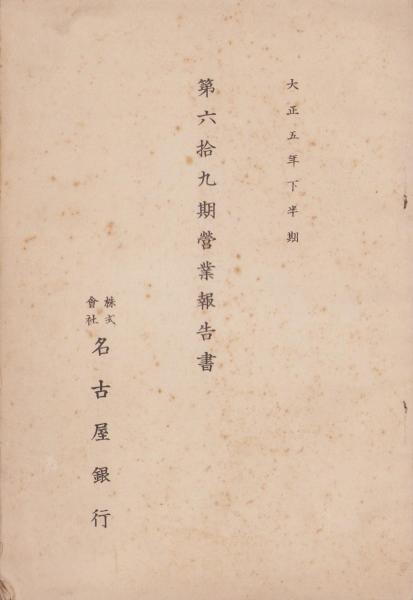 大正五年下半期
第六拾九期營業報告書
株式會社名古屋銀行